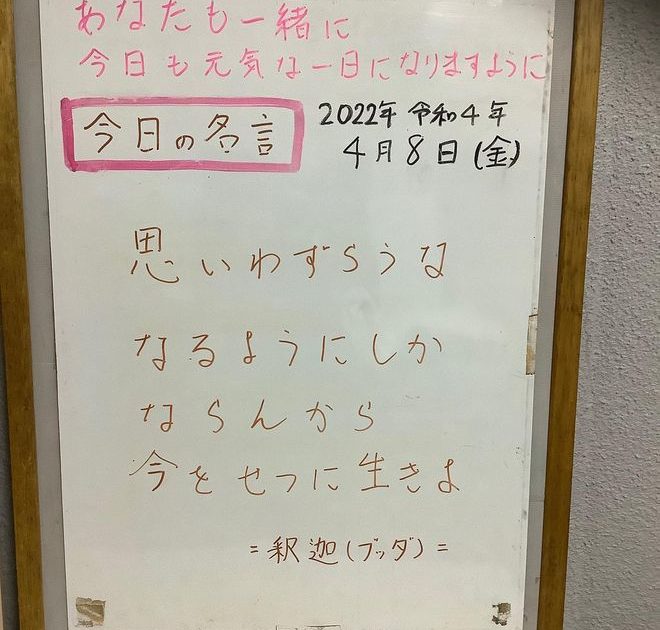 あなたも一緒に
今日も元気な一日になりますように
今日の名言
2022年 令和4年
4月8日(金)
思いわずらうな
なるようにしか
ならんから
今をせつに生きよ
=釈迦(ブッダ)=